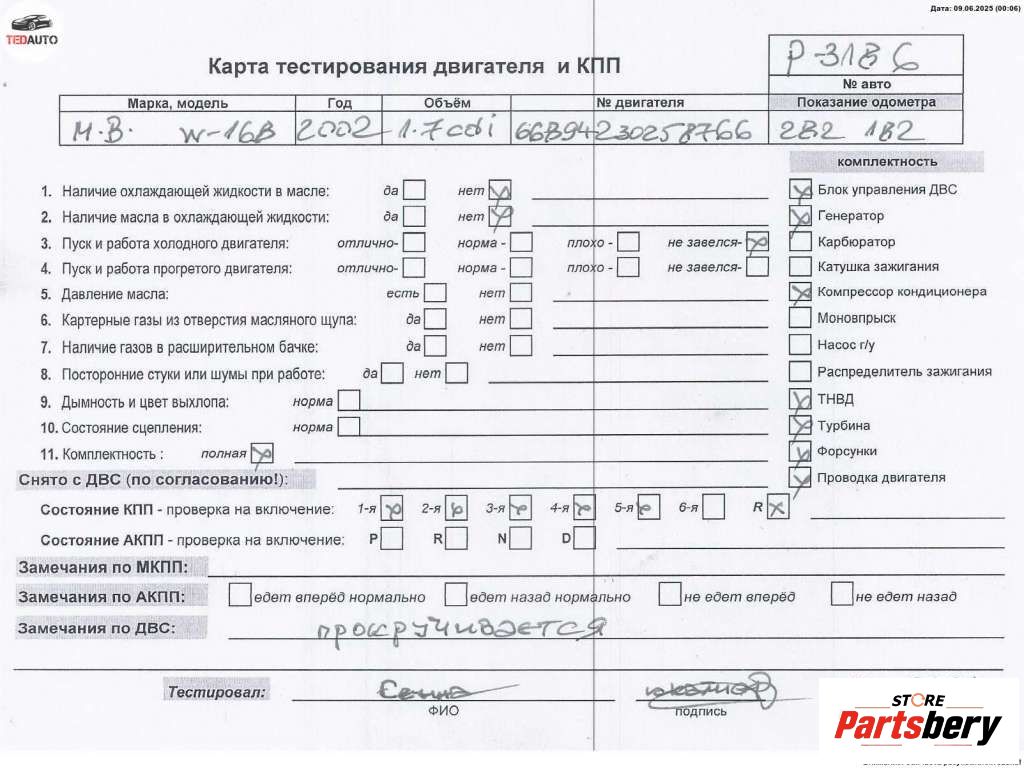 Дата: 09.06.2025 (00:06)
TEDAUTO
Карта тестирования двигателя и КПП
P-3186
№ авто
Марка, модель Год Объём № двигателя Показание одометра
М.В. W-168 2002 1.7cdi 66894230258766 282 182
комплектность
1. Наличие охлаждающей жидкости в масле: да нет
Блок управления ДВС
2. Наличие масла в охлаждающей жидкости: да нет
Генератор
3. Пуск и работа холодного двигателя: отлично- норма - плохо - не завелся-
Карбюратор
4. Пуск и работа прогретого двигателя: отлично- норма - плохо - не завелся-
Катушка зажигания
5. Давление масла: есть нет
Компрессор кондиционера
6. Картерные газы из отверстия масляного щупа: да нет
Моновпрыск
7. Наличие газов в расширительном бачке: да нет
Насос г/у
8. Посторонние стуки или шумы при работе: да нет
Распределитель зажигания
9. Дымность и цвет выхлопа: норма
ТНВД
10. Состояние сцепления: норма
Турбина
11. Комплектность : полная
Форсунки
Снято с ДВС (по согласованию!):
Проводка двигателя
Состояние КПП - проверка на включение: 1-я 2-я 3-я 4-я 5-я 6-я R
Состояние АКПП - проверка на включение: P R N D
Замечания по МКПП:
Замечания по АКПП: едет вперёд нормально едет назад нормально не едет вперёд не едет назад
Замечания по ДВС: прокручивается
Тестировал:
ФИО подпись
STORE
Partsbery